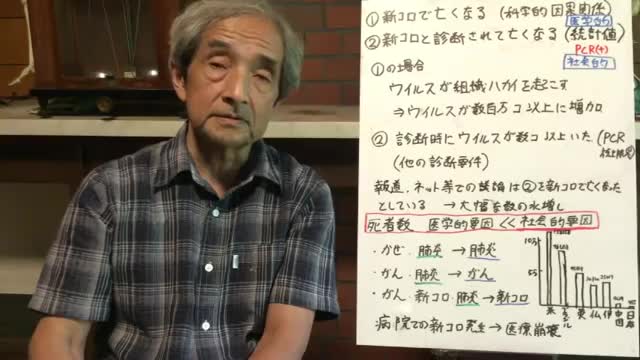 ①新コロで亡くなる(科学的因果関係)
医学的
②新コロと診断されて亡くなる(統計値)
PCR(+)
社会的
①の場合
ウイルスが組織ハカイを起こす
⇒ウイルスが数百万コ以上に増加
②診断時にウイルスが数コ以上いた(PCR
(他の診断要件)
報道、ネット等での議論は②を新コロで亡くなった
としている → 大幅な数の水増し
死者数 医学的要因 << 社会的要因
・かぜ・肺炎 → 肺炎
・がん・肺炎 → がん
・がん・新コロ・肺炎 → 新コロ
病院での新コロ発生 → 医療崩壊
10万
5万
米 英 仏 伊 中国 日本